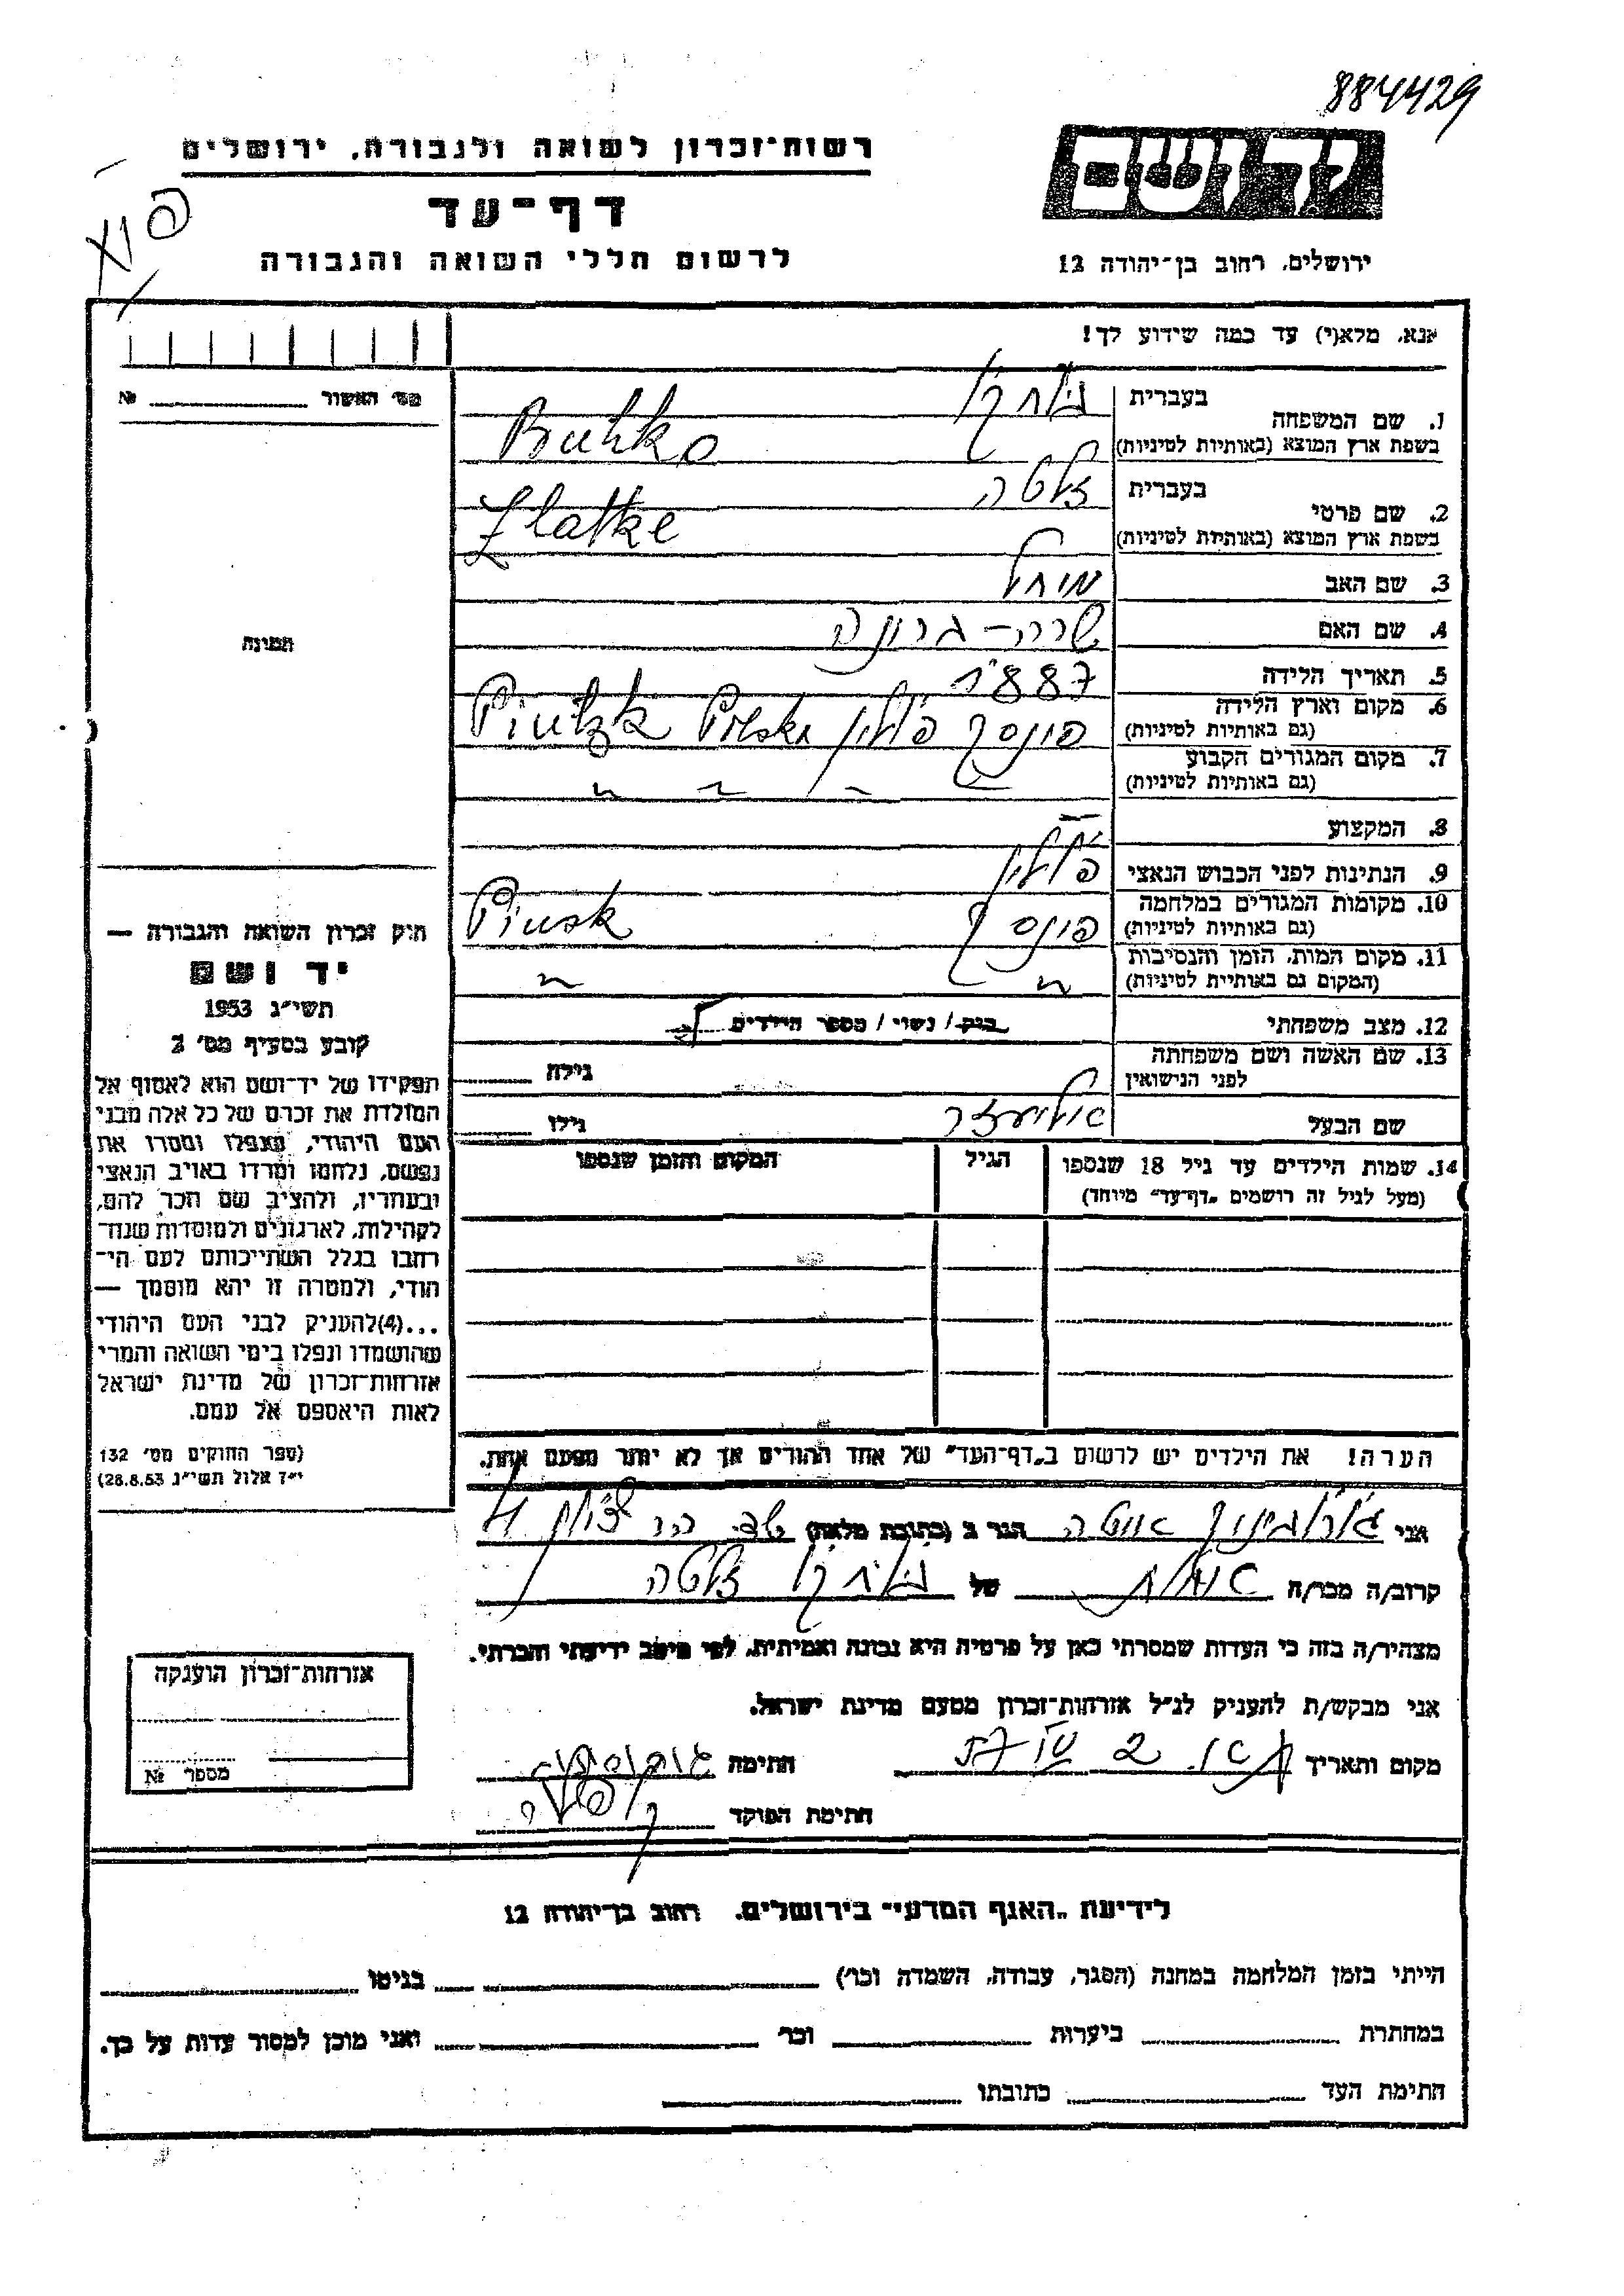 884429
רשות־זכרון לשואה ולגבורה, ירושלים
יד ושם
דף־עד
לרשום חללי השואה והגבורה
ירושלים, רחוב בן־יהודה 12
אנא, מלא(י) עד כמה שידוע לך!
מס׳ האשור № 
1. שם המשפחה
בעברית
בשפת ארץ המוצא (באותיות לטיניות) Buhko
2. שם פרטי
בעברית זלטה
בשפת ארץ המוצא (באותיות לטיניות) Zlatke
3. שם האב
4. שם האם
תמונה
5. תאריך הלידה 1887
6. מקום וארץ הלידה
(גם באותיות לטיניות) פינסק פולין Polska
7. מקום המגורים הקבוע
(גם באותיות לטיניות) " "
8. המקצוע —
9. הנתינות לפני הכבוש הנאצי פולין
10. מקומות המגורים במלחמה
(גם באותיות לטיניות) פינסק Pinsk
11. מקום המות, הזמן והנסיבות
(המקום גם באותיית לטיניות) " "
12. מצב משפחתי רוק / נשוי / מספר הילדים
13. שם האשה ושם משפחתה
לפני הנישואין
גילה
שם הבעל אליעזר גילו
14. שמות הילדים עד גיל 18 שנספו
(מעל לגיל זה רושמים „דף־עד״ מיוחד)
הגיל
המקום והזמן שנספו
חוק זכרון השואה והגבורה —
יד ושם
תשי״ג 1953
קובע בסעיף מס׳ 2
תפקידו של יד־ושם הוא לאסוף אל
המולדת את זכרם של כל אלה מבני
העם היהודי, שנפלו ומסרו את
נפשם, נלחמו ומרדו באויב הנאצי
ובעוזריו, ולהציב שם וזכר להם,
לקהילות, לארגונים ולמוסדות שנח־
רבו בגלל השתייכותם לעם הי־
הודי, ולמטרה זו יהא מוסמך —
...(4)להעניק לבני העם היהודי
שהושמדו ונפלו בימי השואה והמרי
אזרחות־זכרון של מדינת ישראל
לאות היאספם אל עמם.
(ספר החוקים מס׳ 132
י״ד אלול תשי״ג 28.8.53)
הערה! את הילדים יש לרשום ב„דף־העד״ של אחד ההורים אך לא יותר מפעם אחת.
אני הגר ב (כתובת מלאה)
קרוב/ה מכר/ה של זלטה
מצהיר/ה בזה כי העדות שמסרתי כאן על פרטיה היא נכונה ואמיתית, לפי מיטב ידיעתי והכרתי.
אני מבקש/ת להעניק לנ״ל אזרחות־זכרון מטעם מדינת ישראל.
מקום ותאריך חתימה
חתימת הפוקד
אזרחות־זכרון הוענקה
מספר №
לידיעת „האגף המדעי״ בירושלים, רחוב בן־יהודה 12
הייתי בזמן המלחמה במחנה (הסגר, עבודה, השמדה וכר׳) בגיטו
במחתרת ביערות וכר׳ ואני מוכן למסור עדות על כך.
חתימת העד כתובתו